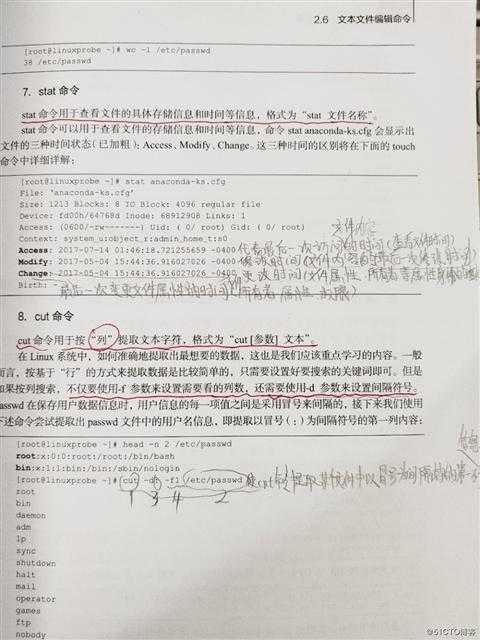 2.6 文本文件编辑命令
[root@linuxprobe ~]# wc -l /etc/passwd
38 /etc/passwd
7. stat 命令
stat 命令用于查看文件的具体存储信息和时间等信息，格式为“stat 文件名称”。
stat 命令可以用于查看文件的存储信息和时间等信息，命令 stat anaconda-ks.cfg 会显示出
文件的三种时间状态（已加粗）：Access、Modify、Change。这三种时间的区别将在下面的 touch
命令中详细详解：
[root@linuxprobe ~]# stat anaconda-ks.cfg
File: ‘anaconda-ks.cfg’
Size: 1213 Blocks: 8 IO Block: 4096 regular file
Device: fd00h/64768d Inode: 68912908 Links: 1
Access: (0600/-rw-------) Uid: ( 0/ root) Gid: ( 0/ root)
文件内容
Context: system_u:object_r:admin_home_t:s0
Access: 2017-07-14 01:46:18.721255659 -0400 代表最后一次访问的时间(查看文件时间)
Modify: 2017-05-04 15:44:36.916027026 -0400 修改时间(文件内容的最后一次修改时间)
Change: 2017-05-04 15:44:36.916027026 -0400 更改时间(文件属性、所有者等属性
Birth: -
最后一次变更文件属性的时间(所有者 属性 权限)
8. cut 命令
cut 命令用于按“列”提取文本字符，格式为“cut [参数] 文本”。
在 Linux 系统中，如何准确地提取出最想要的数据，这也是我们应该重点学习的内容。一般
而言，按基于“行”的方式来提取数据是比较简单的，只需要设置好要搜索的关键词即可。但是
如果按列搜索，不仅要使用-f 参数来设置需要看的列数，还需要使用-d 参数来设置间隔符号。
passwd 在保存用户数据信息时，用户信息的每一项值之间是采用冒号来间隔的，接下来我们使用
下述命令尝试提取出 passwd 文件中的用户名信息，即提取以冒号（:）为间隔符号的第一列内容：
[root@linuxprobe ~]# head -n 2 /etc/passwd
root:x:0:0:root:/root:/bin/bash
bin:x:1:1:bin:/bin:/sbin/nologin
[root@linuxprobe ~]# cut -d: -f1 /etc/passwd
1 3 4 2
root
bin
daemon
adm
lp
sync
shutdown
halt
mail
operator
games
ftp
nobody
@51CTO博客